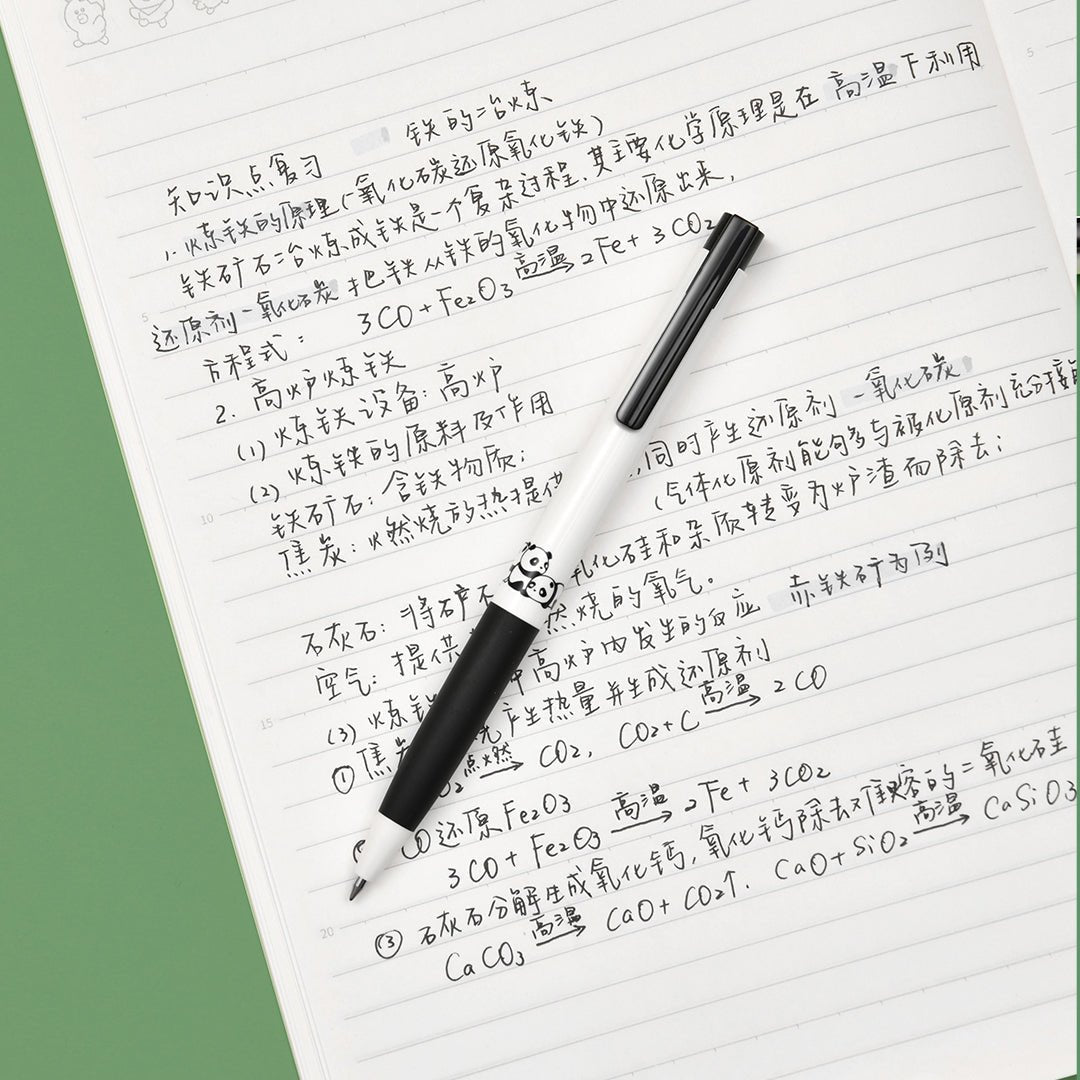 铁的冶炼
知识点复习
1. 炼铁的原理(氧化碳还原氧化铁)
铁矿石冶炼成铁是一个复杂过程.其主要化学原理是在 高温 下利用
还原剂一氧化碳 把铁从铁的氧化物中还原出来,
方程式: 3CO+Fe2O3 高温→ 2Fe+3CO2
2. 高炉炼铁
(1) 炼铁设备:高炉
(2) 炼铁的原料及作用
铁矿石:含铁物质;
焦炭:燃烧放热提供 ,同时产生还原剂 一氧化碳
(气体化原剂能够多与被化原剂充分接
石灰石:将矿石 氧化硅和杂质转变为炉渣而除去;
空气:提供 燃烧的氧气。
(3) 炼铁 高炉内发生的反应 赤铁矿为例
① 焦炭 产生热量并生成还原剂
O2 点燃→ CO2, CO2+C 高温→ 2CO
CO还原Fe2O3
3CO+Fe2O3 高温→ 2Fe+3CO2
③ 石灰石分解生成氧化钙,氧化钙除去难熔的二氧化硅
CaCO3 高温→ CaO+CO2↑. CaO+SiO2 高温→ CaSiO3
5
10
15
20
5